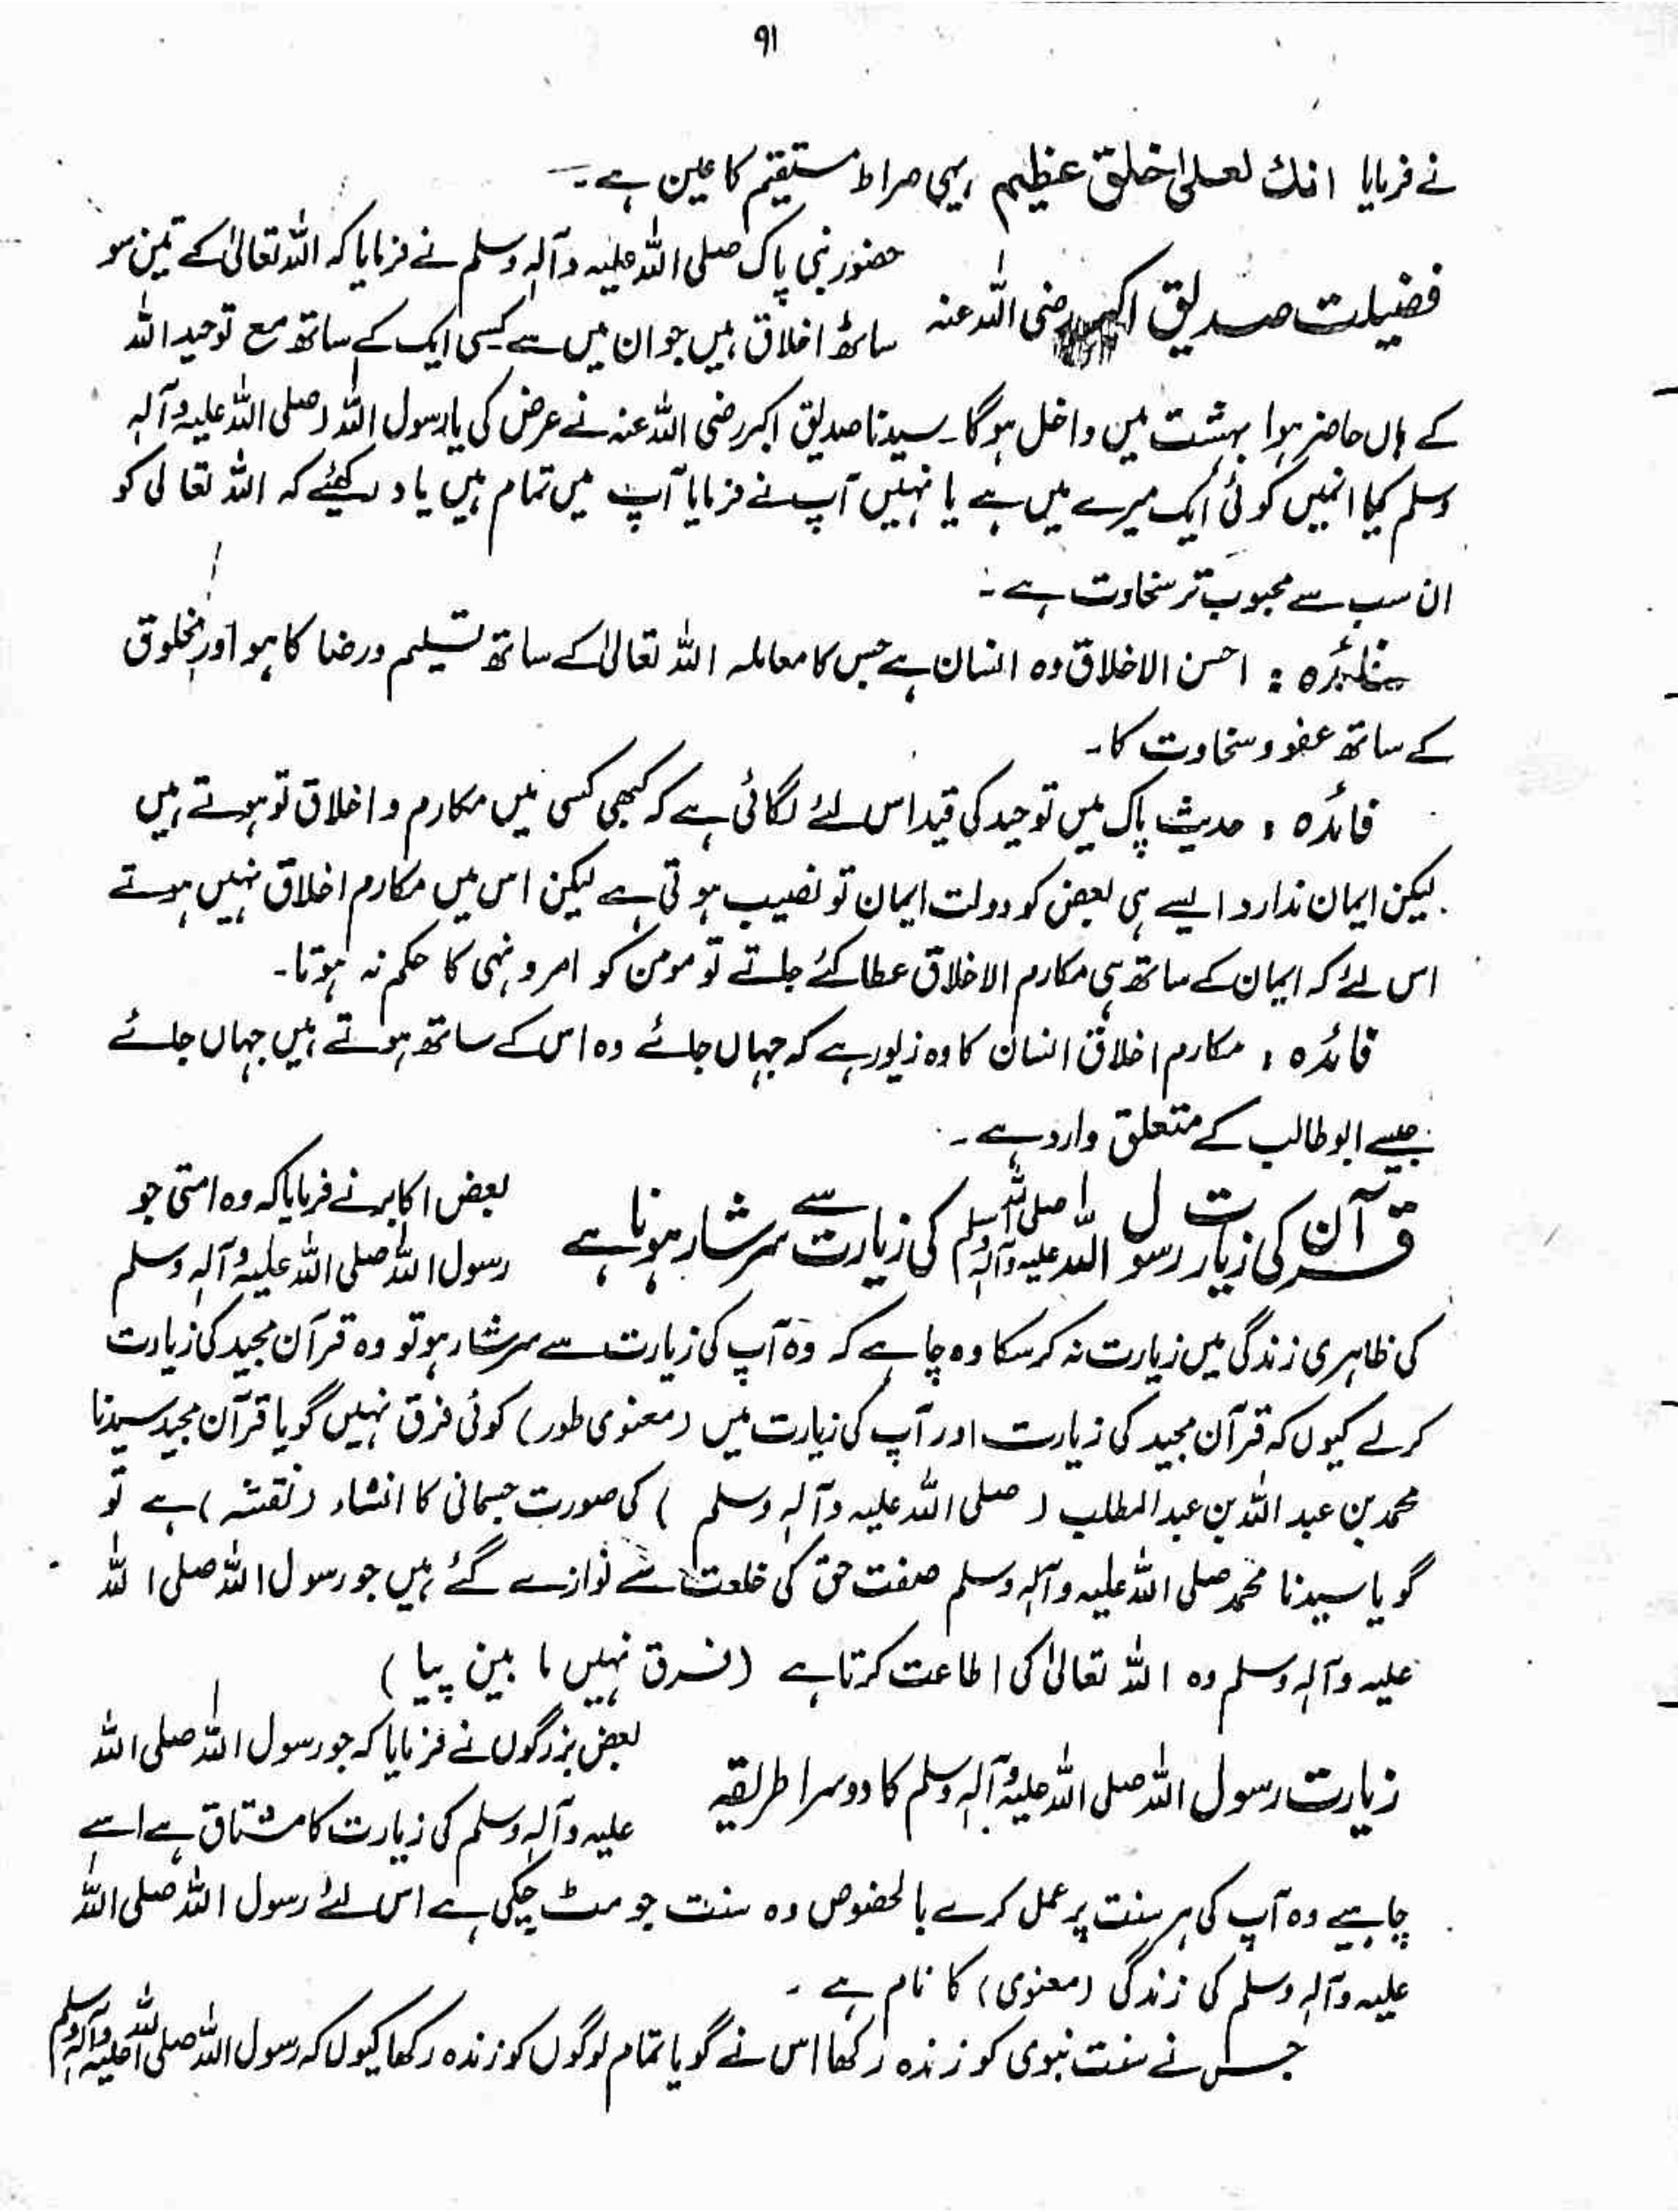 ۹۱
نے فرمایا انک لعلیٰ خلق عظیم یہی صراط مستقیم کا عین ہے۔
فضیلت صدیق اکبر رضی اللہ عنہ
حضور نبی پاک صلی اللہ علیہ وآلہٖ وسلم نے فرمایا کہ اللہ تعالیٰ کے تین سو
ساٹھ اخلاق ہیں جو ان میں سے کسی ایک کے ساتھ مع توحید اللہ
کے ہاں حاضر ہوا بہشت میں داخل ہوگا۔ سیدنا صدیق اکبر رضی اللہ عنہ نے عرض کی یا رسول اللہ (صلی اللہ علیہ وآلہٖ
وسلم کیا انمیں کوئی ایک میرے میں ہے یا نہیں آپ نے فرمایا آپ میں تمام ہیں یاد رکھئے کہ اللہ تعالیٰ کو
ان سب سے محبوب تر سخاوت ہے۔
فائدہ : احسن الاخلاق وہ انسان ہے جس کا معاملہ اللہ تعالیٰ کے ساتھ تسلیم ورضا کا ہو اور مخلوق
کے ساتھ عفو و سخاوت کا۔
فائدہ : حدیث پاک میں توحید کی قید اس لئے لگائی ہے کہ کبھی کسی میں مکارم و اخلاق تو ہوتے ہیں
لیکن ایمان ندارد ایسے ہی بعض کو دولت ایمان تو نصیب ہوتی ہے لیکن اس میں مکارم اخلاق نہیں ہوتے
اس لئے کہ ایمان کے ساتھ ہی مکارم الاخلاق عطا کئے جاتے تو مومن کو امر و نہی کا حکم نہ ہوتا۔
فائدہ : مکارم اخلاق انسان کا وہ زیور ہے کہ جہاں جائے وہ اس کے ساتھ ہوتے ہیں جہاں جائے
جیسے ابوطالب کے متعلق وارد ہے۔
قرآن کی زیارت رسول اللہ صلی اللہ علیہ وآلہٖ وسلم کی زیارت سے سرشار ہونا ہے
بعض اکابر نے فرمایا کہ وہ امتی جو
رسول اللہ صلی اللہ علیہ وآلہٖ وسلم
کی ظاہری زندگی میں زیارت نہ کرسکا وہ چاہے کہ وہ آپ کی زیارت سے سرشار ہو تو وہ قرآن مجید کی زیارت
کرلے کیوں کہ قرآن مجید کی زیارت اور آپ کی زیارت میں (معنوی طور) کوئی فرق نہیں گویا قرآن مجید سیدنا
محمد بن عبد اللہ بن عبد المطلب ( صلی اللہ علیہ وآلہٖ وسلم ) کی صورت جسمانی کا انشاء (نقشہ) ہے تو
گویا سیدنا محمد صلی اللہ علیہ وآلہٖ وسلم صفت حق کی خلعت سے نوازے گئے ہیں جو رسول اللہ صلی اللہ
علیہ وآلہٖ وسلم وہ اللہ تعالیٰ کی اطاعت کرتا ہے (فرق نہیں ما بین پیا )
زیارت رسول اللہ صلی اللہ علیہ وآلہٖ وسلم کا دوسرا طریقہ
بعض بزرگوں نے فرمایا کہ جو رسول اللہ صلی اللہ
علیہ وآلہٖ وسلم کی زیارت کا مشتاق ہے اسے
چاہیے وہ آپ کی ہر سنت پر عمل کرے بالخصوص وہ سنت جو مٹ چکی ہے اس لئے رسول اللہ صلی اللہ
علیہ وآلہٖ وسلم کی زندگی (معنوی) کا نام ہے۔
جس نے سنت نبوی کو زندہ رکھا اس نے گویا تمام لوگوں کو زندہ رکھا کیوں کہ رسول اللہ صلی اللہ علیہ وآلہٖ وسلم